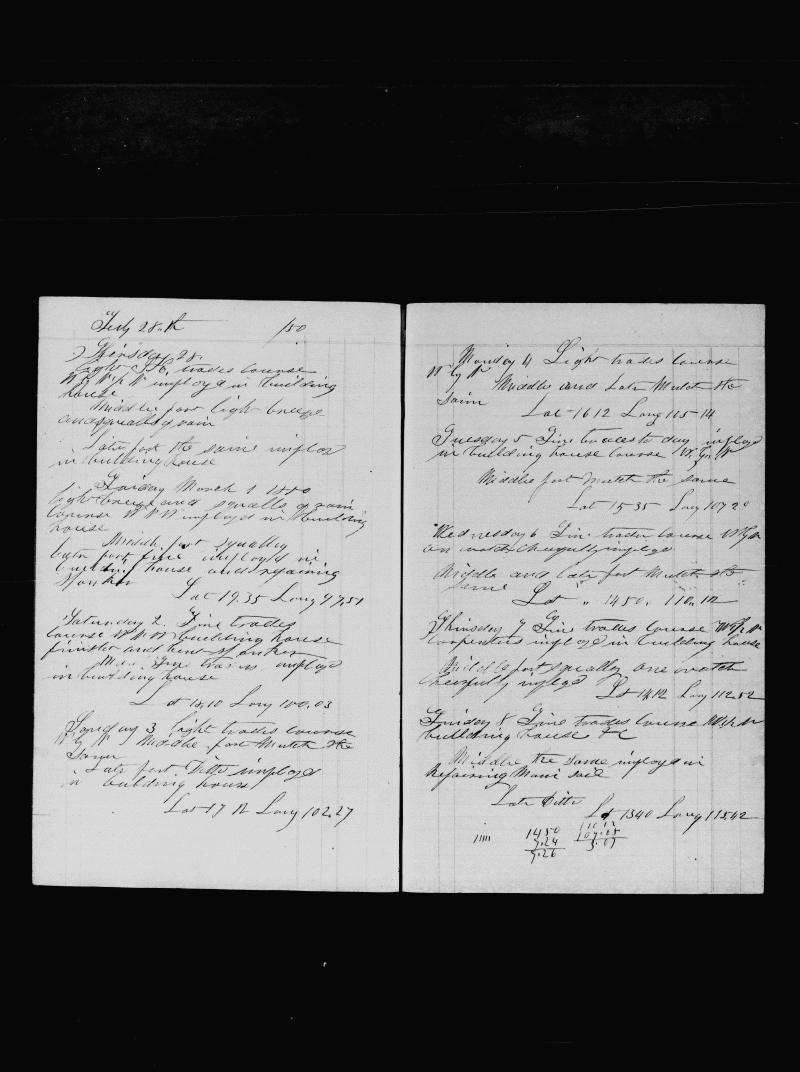 Feby 28th /50
Thirsday 28
light S.E. trades Course
W by N 1/2 N imployd in building
house
Middle part light breeze
and squalls of rain
Late part the same imployd
in building house
Friday March 1 1850
light breeze and squalls of rain
Course W N W imployd in building
house
Middle part squalley
Later part fine imployd in
building house and repairing
Spanker
Lat 19.35 Long 97.51
Saturday 2. Fine trades
Course W N W building house
finisht and bent Spanker
Mid. Fine trades imployd
in building house
Lat 18,10 Long 100,03
Sonday 3 light trades course
W by N Middle part Mutch the
Same
Late part Ditto imployd
in building house
Lat 17 12 Long 102.27
Monday 4 Light trades Course
W by N
Middle and Late Mutch the
Same
Lat 16 12 Long 105 14
Tuesday 5 Fine trades to day imployd
in building house course W. by. N
Middle part Mutch the same
Lat 15 35 Long 107 20
Wednesday 6 Fine trades Course W by N
one watch cheerfully imployd
Middle and late part Mutch the
Same
Lat " 1450, 110,12
Thirsday 7 Fine trades Course W by N
Carpenters imployd in building house
Middle part squalley one watch
cheerfully imployd
Lat 14,12 Long 112,52
Friday 8 Fine trades Course W by N
building house &c
Middle the same imployd in
Repairing Main sail
Late Ditto
Lat 1340 Long 11542
1450
7.24
7.26
110 12
107.05
3.07